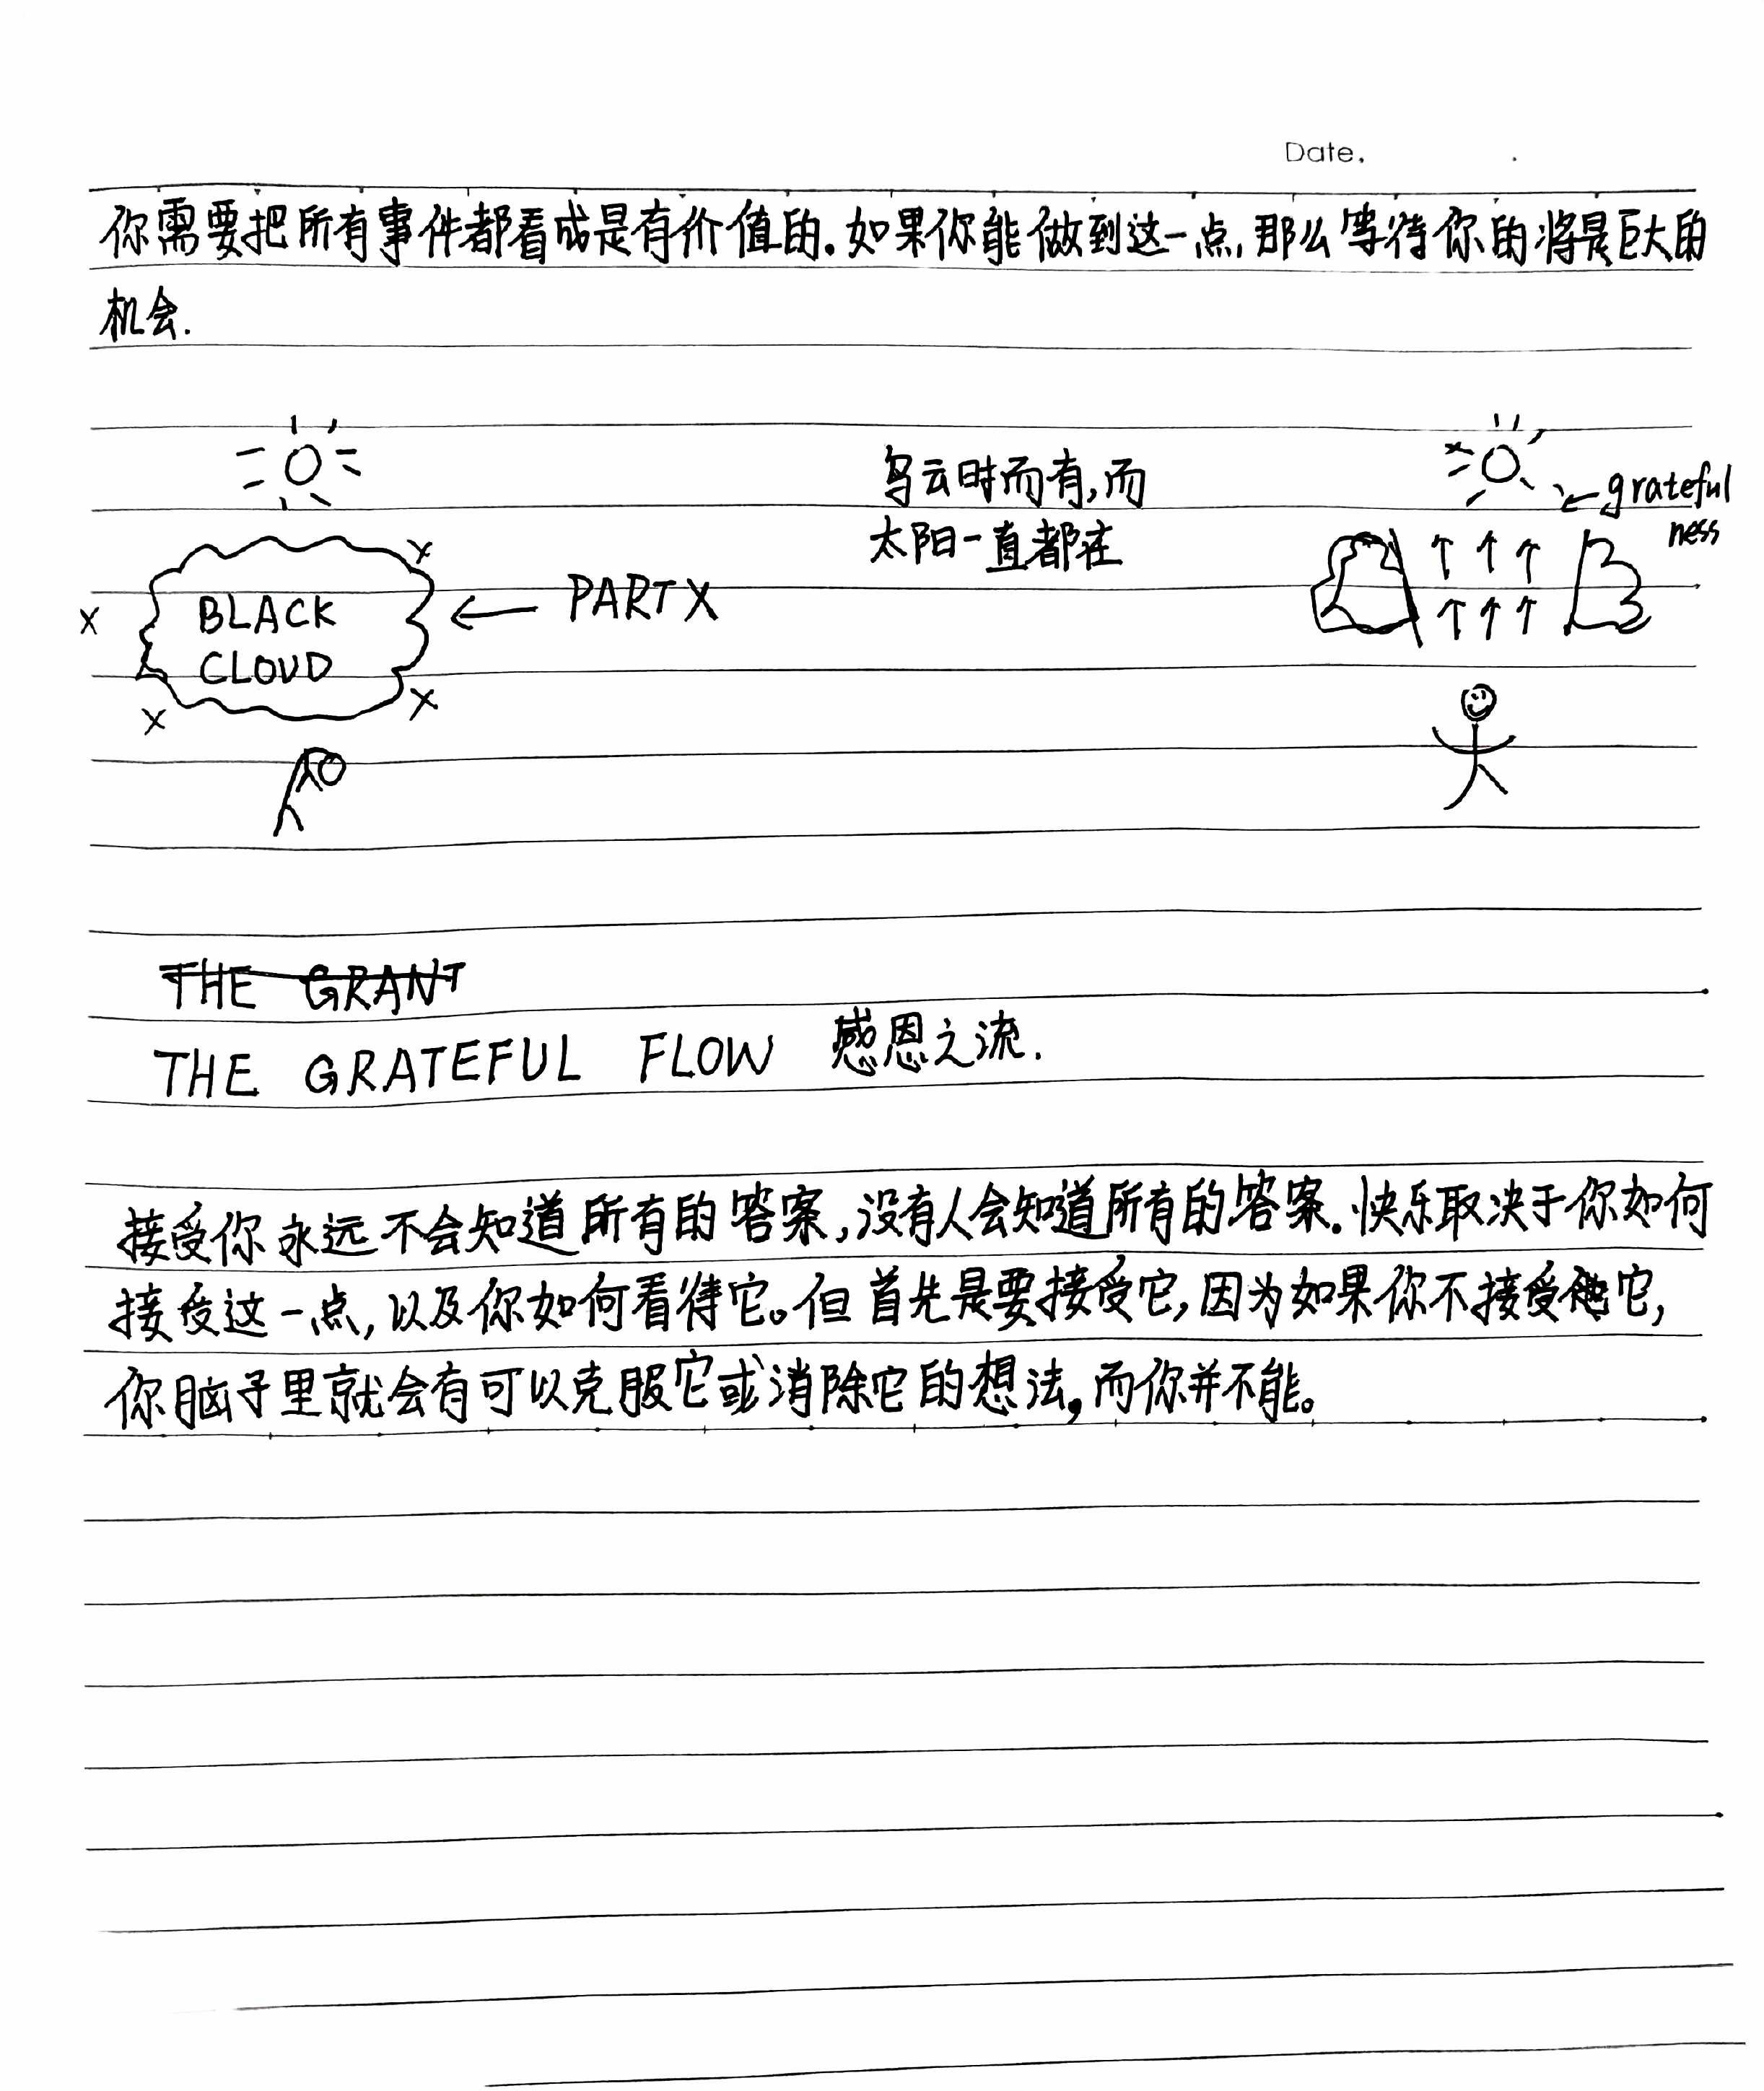 Date.
你需要把所有事件都看成是有价值的.如果你能做到这一点,那么等待你的将是巨大的
机会.
乌云时而有,而
太阳一直都在
grateful
ness
BLACK
CLOUD
PART X
THE GRANT
THE GRATEFUL FLOW 感恩之流.
接受你永远不会知道所有的答案,没有人会知道所有的答案.快乐取决于你如何
接受这一点,以及你如何看待它。但首先是要接受它,因为如果你不接受它,
你脑子里就会有可以克服它或消除它的想法,而你并不能。